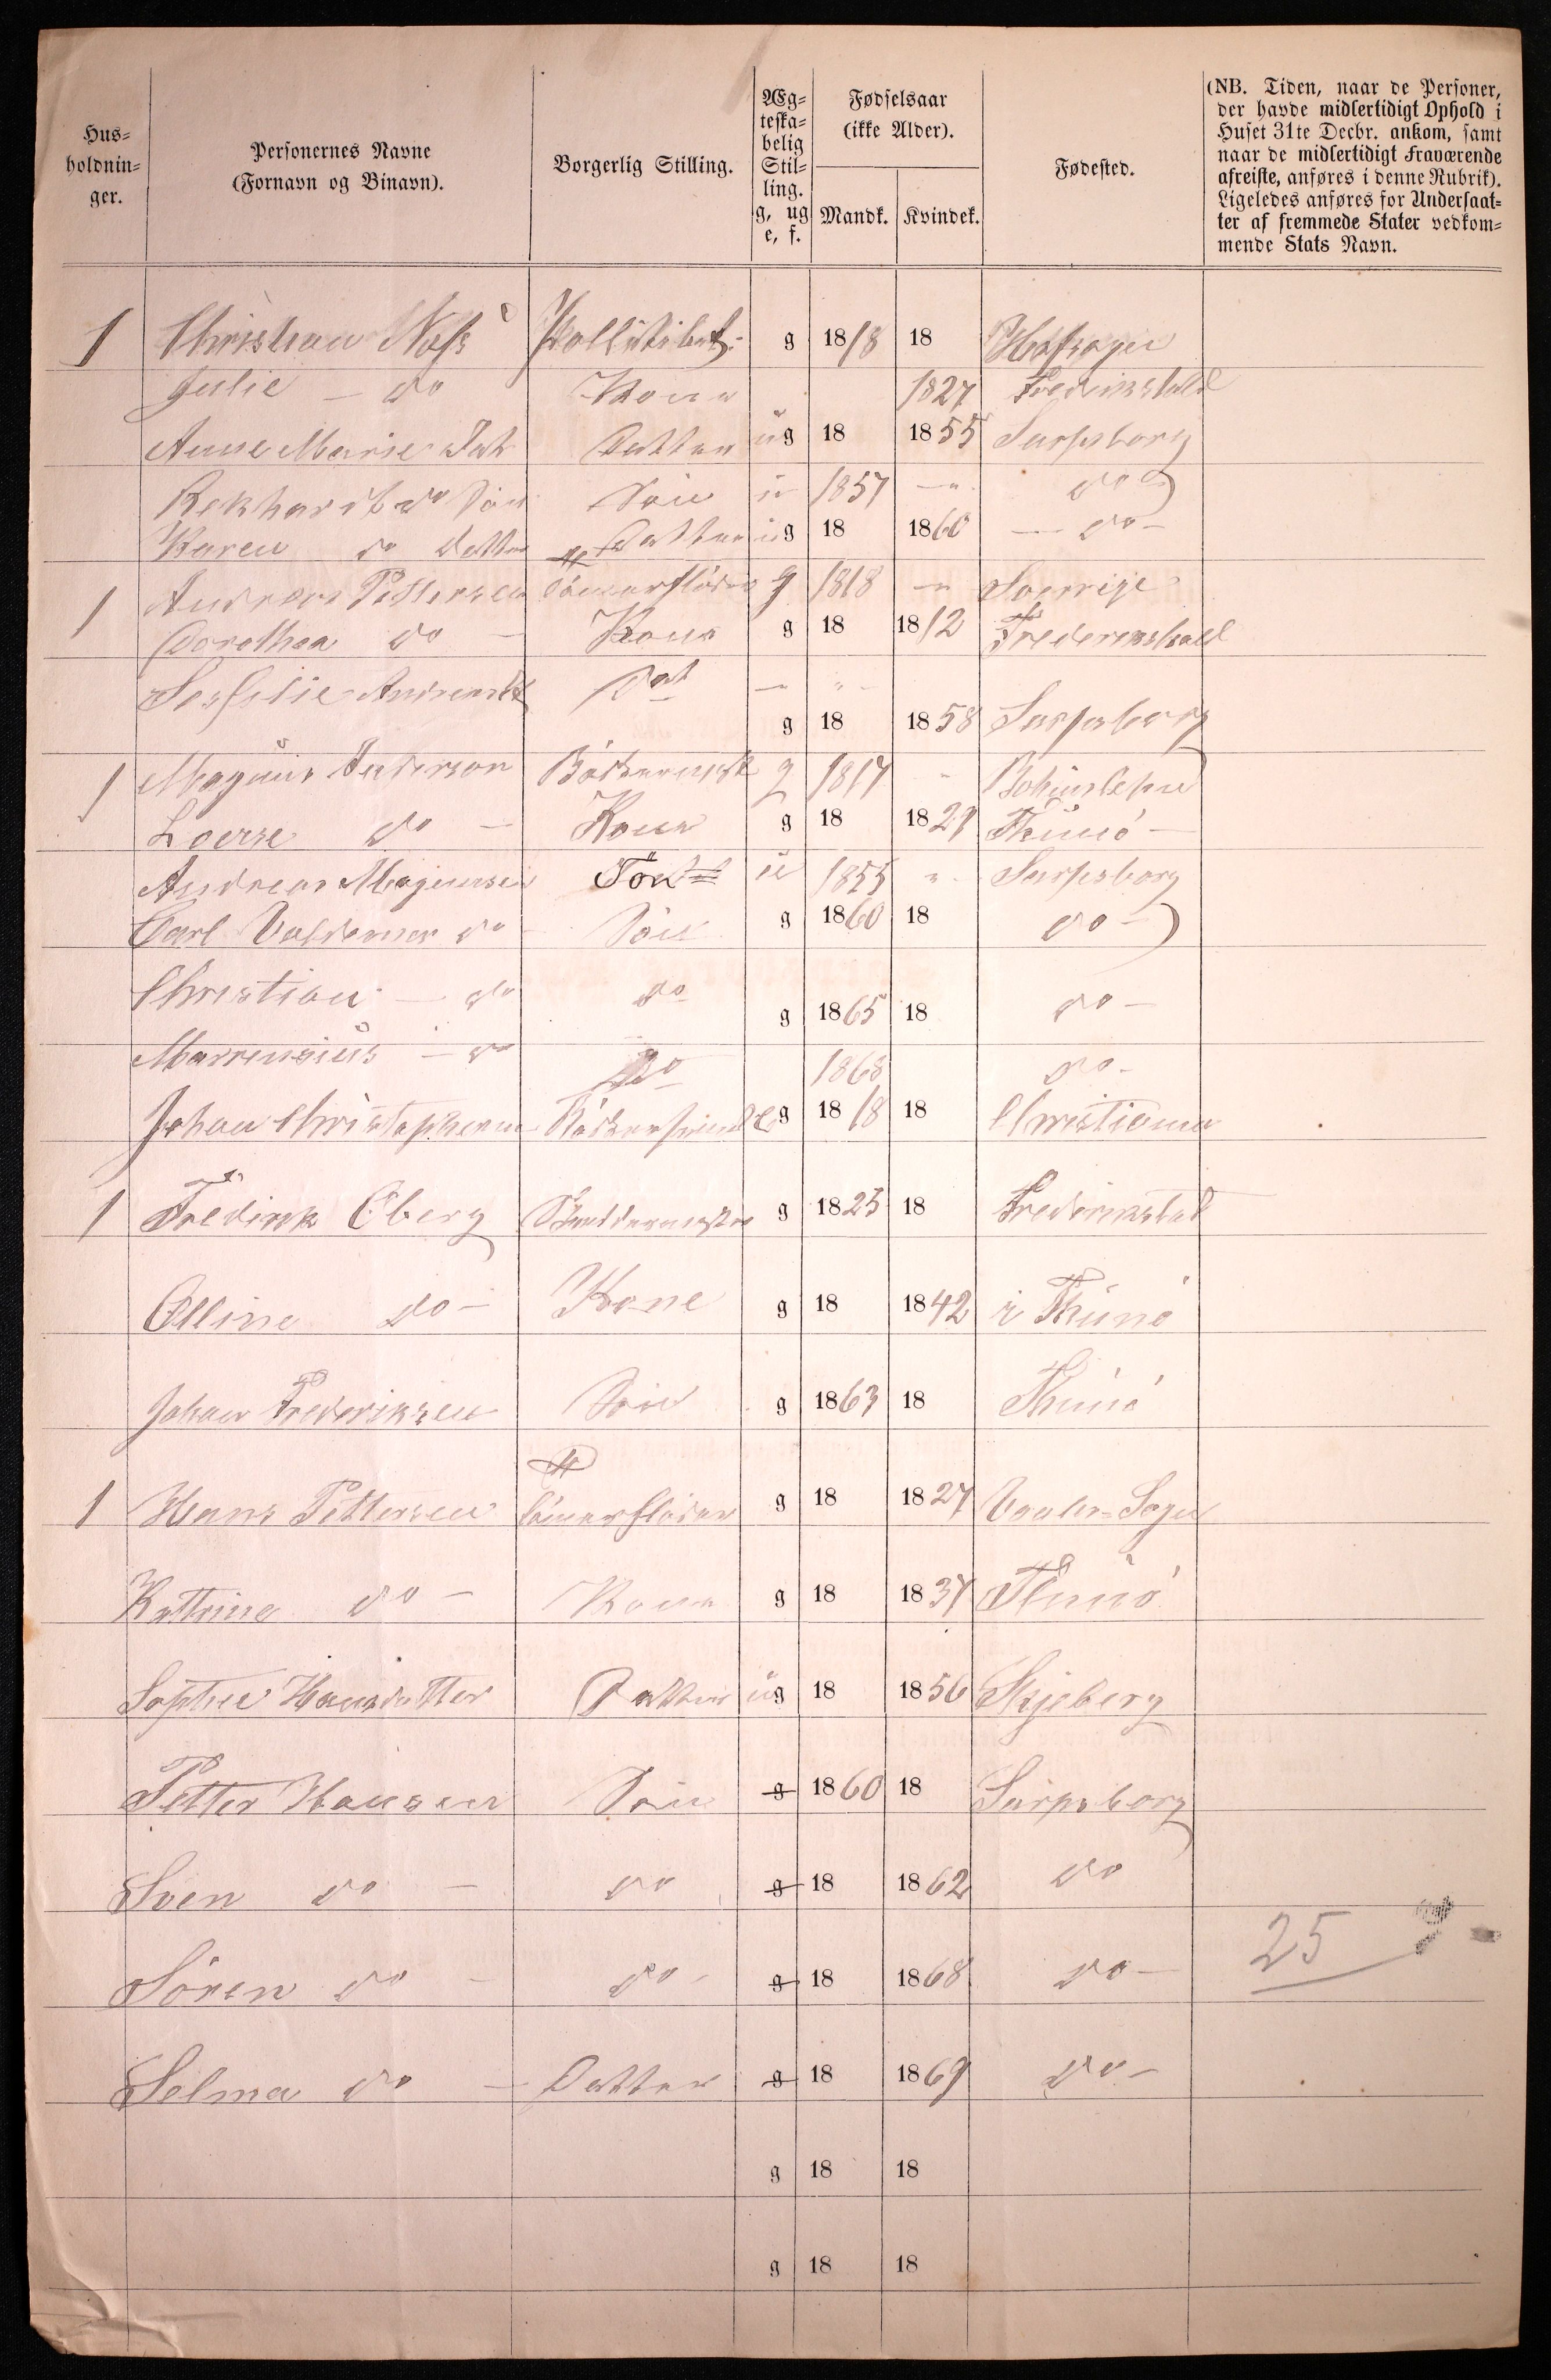 Hus=
holdnin=
ger.
Personernes Navne
(Fornavn og Binavn).
Borgerlig Stilling.
Æg=
teska=
belig
Stil=
ling.
g, ug
e, f.
Fødselsaar
(ikke Alder).
Mandk. Kvindek.
Fødested.
(NB. Tiden, naar de Personer,
der havde midlertidigt Ophold i
Huset 31te Decbr. ankom, samt
naar de midlertidigt Fraværende
afreiste, anføres i denne Rubrik).
Ligeledes anføres for Undersaat=
ter af fremmede Stater vedkom=
mende Stats Navn.
1 Christian g 1818 18
Julie - do Kone 1827 Fredrikshald
Anne Marie Dat Datter ug 18 1855 Sarpsborg
do Søn Søn u 1857 - do
Karen do Datter Datter ug 18 1860 - do -
1 Andreas Pettersen g 1818 - Sverrige
Dorothea do - Kone g 18 1812 Frederikshald
Andreasd Dat g 18 1858 Sarpsborg
1 Magnus Anderson g 1817 " Bohuslehn
Lovise do - Kone g 18 1829 Thunø -
Andreas Magnusen Søn u 1855 " Sarpsborg
Carl Valdemar do - Søn g 1860 18 do -
Christian - do do g 1865 18 do -
- do do 1868 do -
Johan Christophersen g 1818 18 Christiania
1 Fredrik Oberg g 1825 18 Frederikstad
Olline do - Kone g 18 1842 i Thunø
Johan Frederiksen Søn g 1863 18 Thunø
1 Hans Pettersen g 18 1827 Vaaler=Sogn
Kattrine do - Kone g 18 1837 Thunø
Sophie Hansdatter Datter ug 18 1856 Skjeberg
Petter Hansen Søn g 1860 18 Sarpsborg
Sven do - do g 18 1862 do
Sören do - do - g 18 1868 do -
25
Selma do - Datter g 18 1869 do -
g 18 18
g 18 18